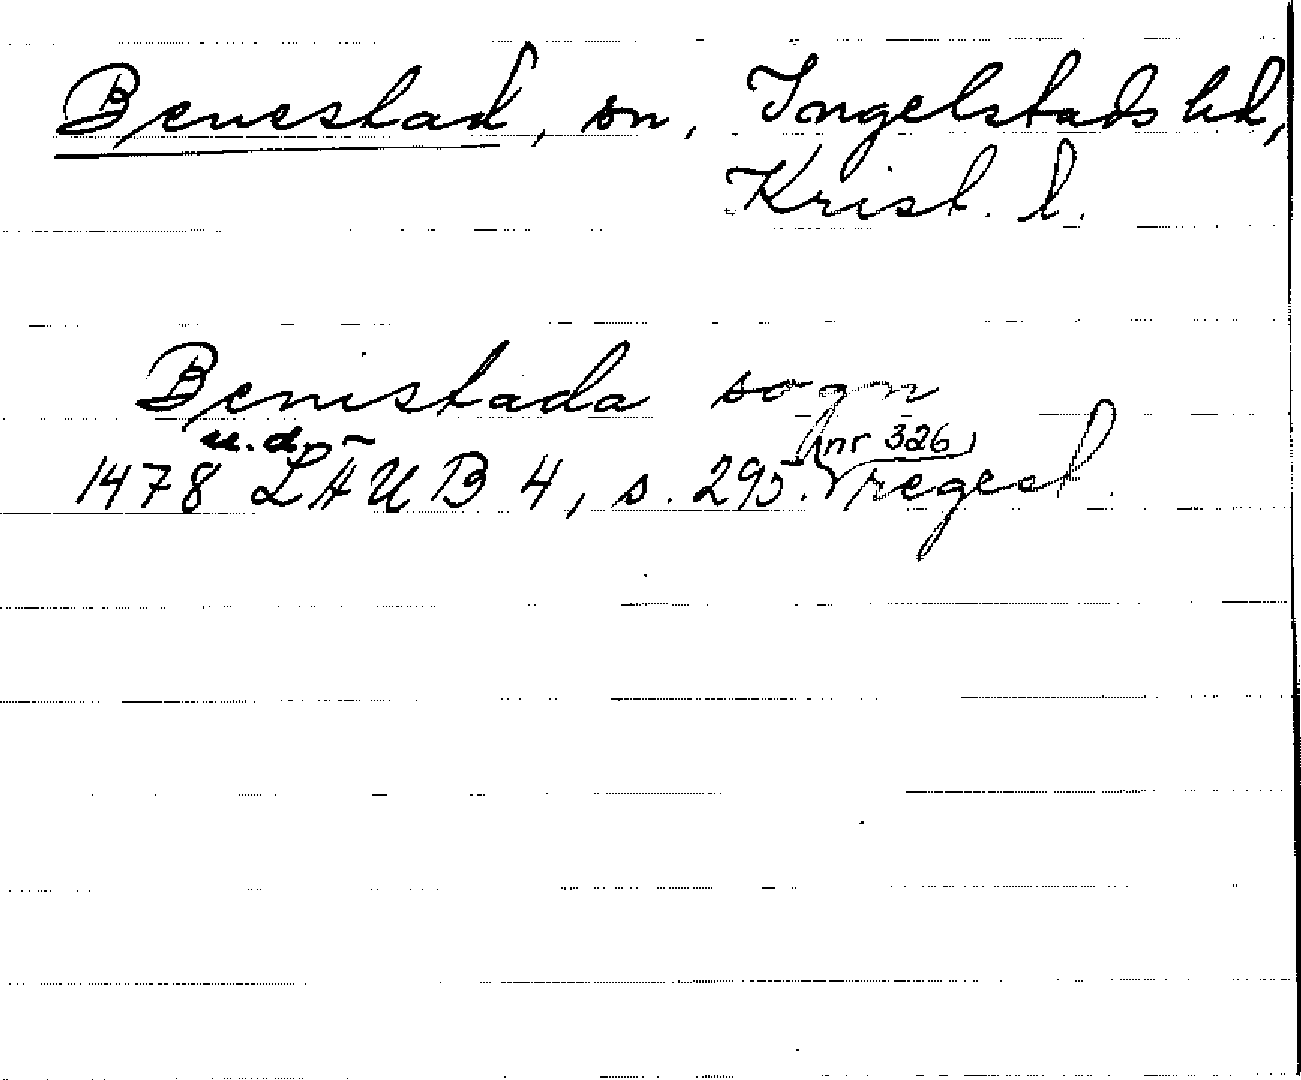 Benestad, sn, Ingelstads hd,
Krist. l.
Benistada sogn
u.d. nr 326
1478 LÄUB 4, s. 295. regest.